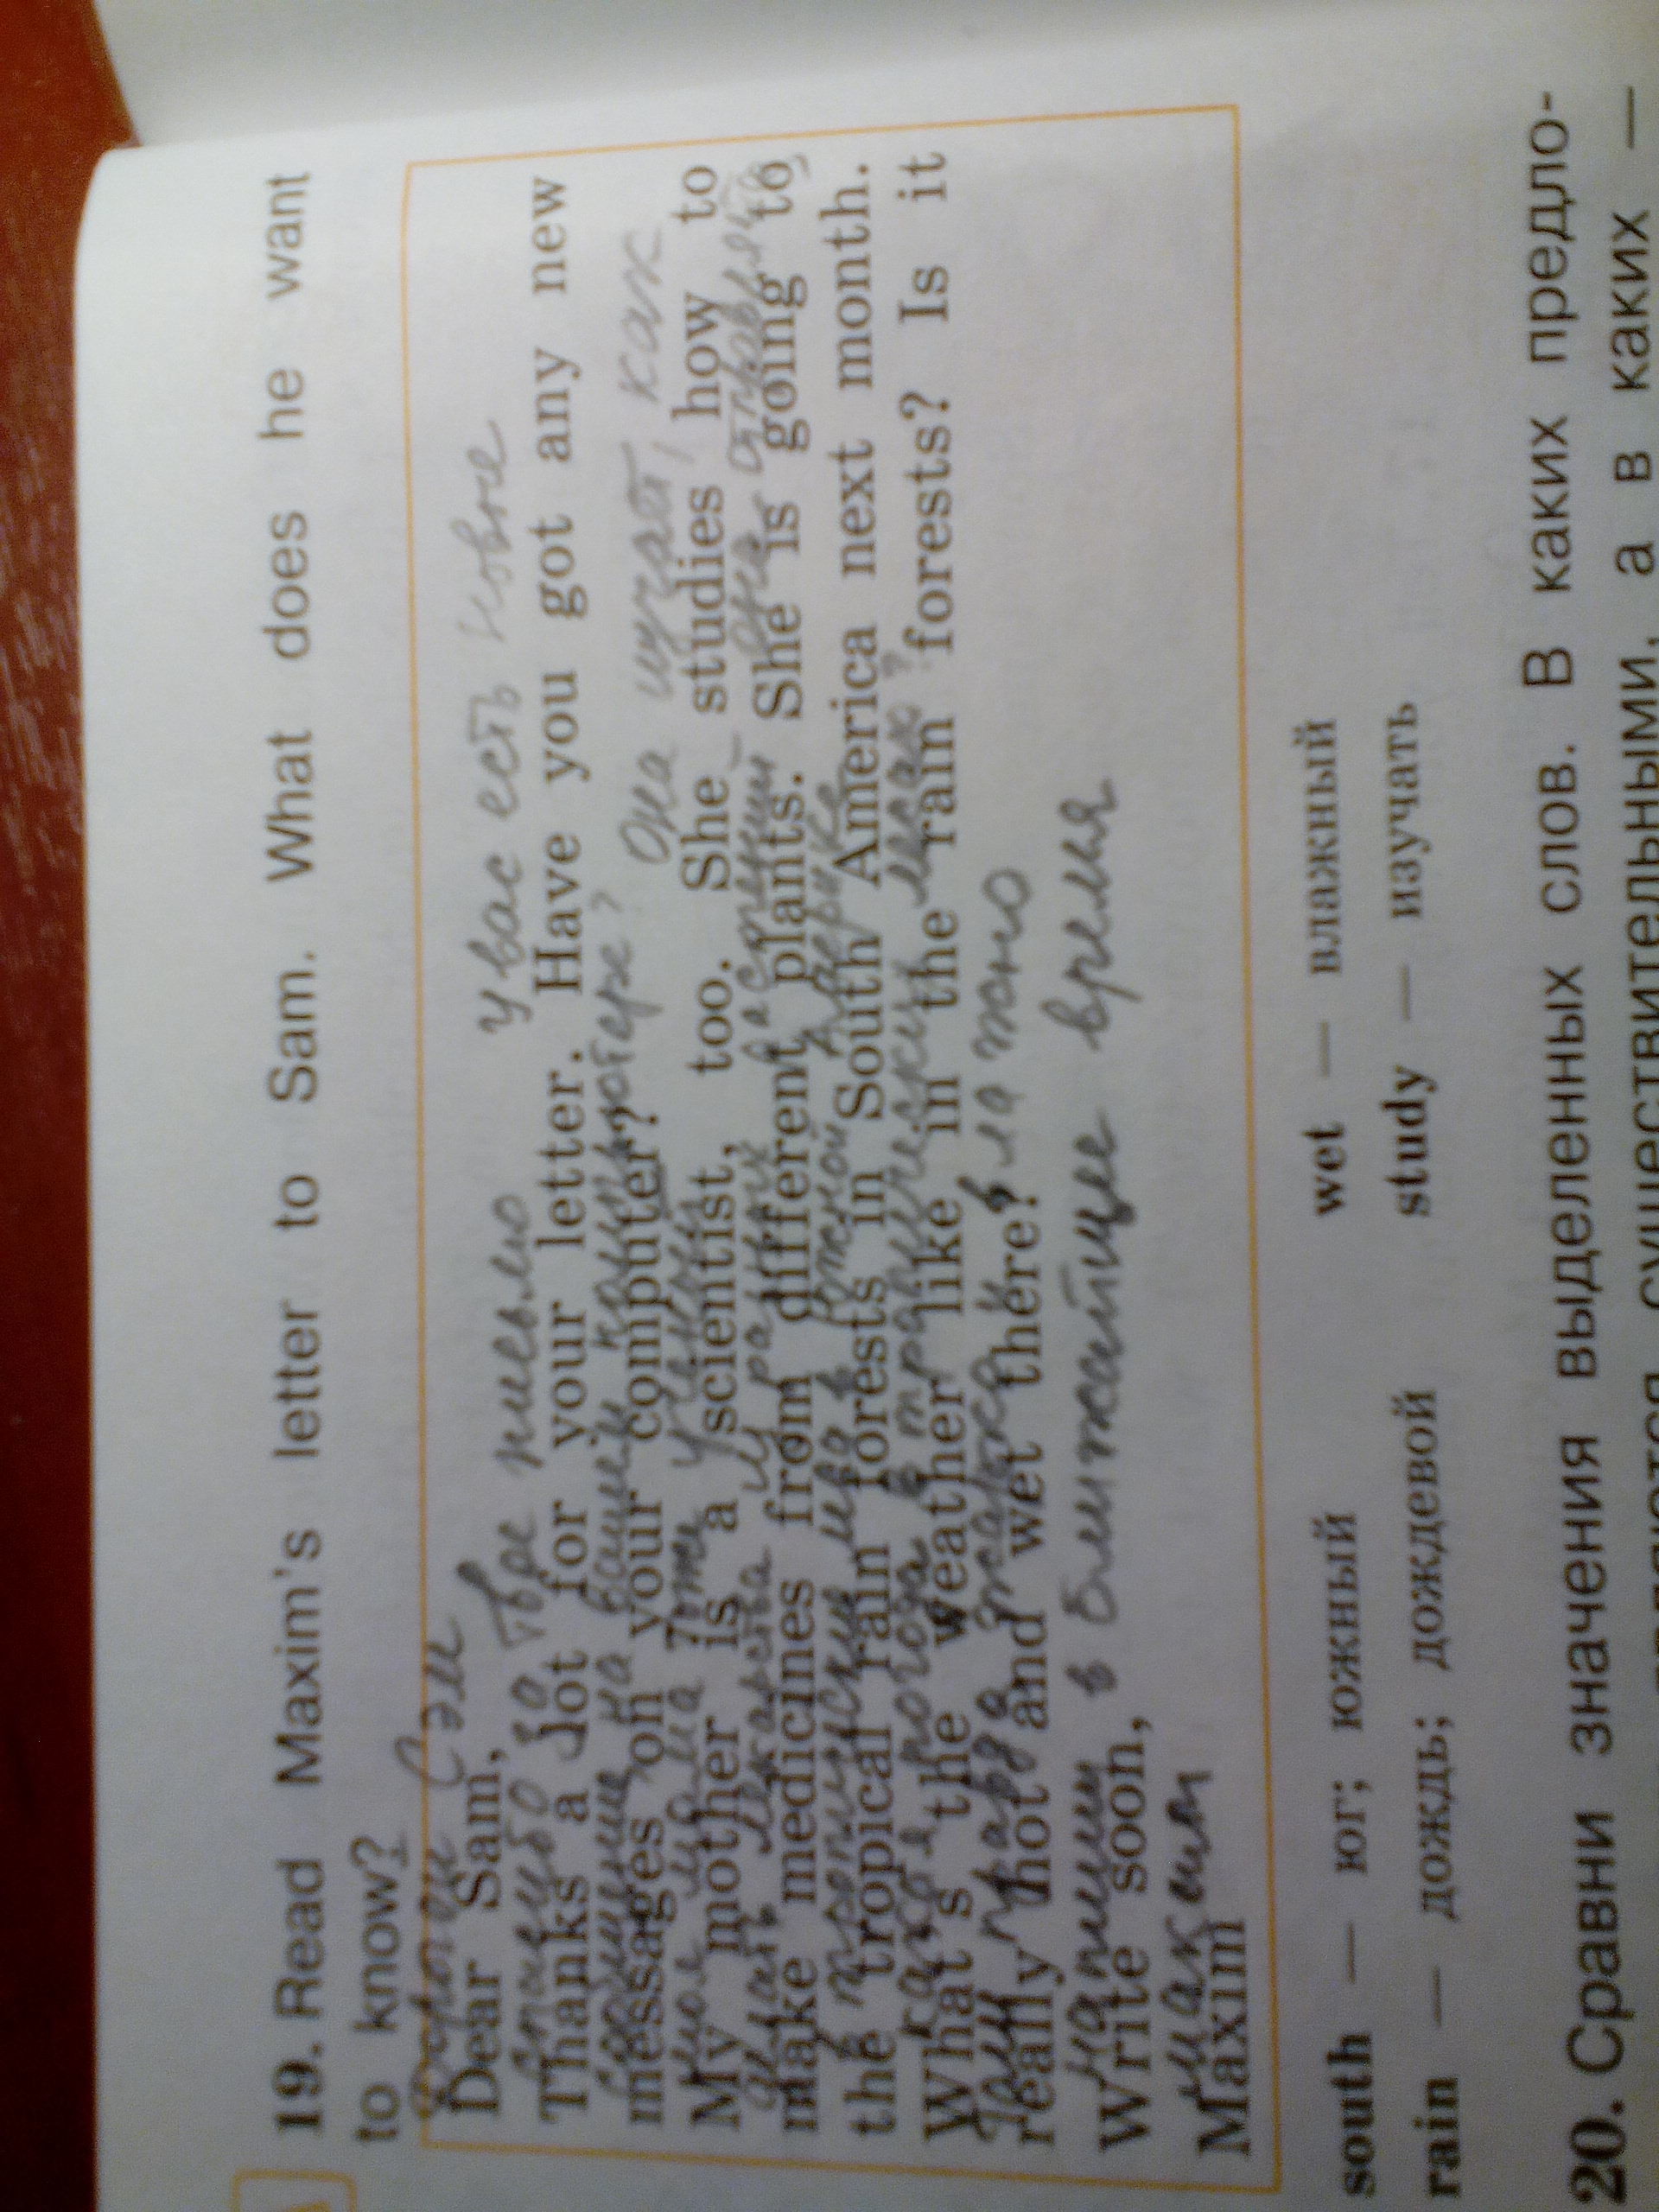 19. Read Maxim's letter to Sam. What does he want
to know?
Дорогой Сэм
Dear Sam,
спасибо за твое письмо у вас есть новые
Thanks a lot for your letter. Have you got any new
сообщения на вашем компьютере?
messages on your computer?
моя мама тоже учёный Она изучает, как
My mother is a scientist, too. She studies how to
делать лекарства из разных растений она отправляется
make medicines from different plants. She is going to
в тропический лес в Южной Америке
the tropical rain forests in South America next month.
какая погода в тропических лесах?
What's the weather like in the rain forests? Is it
там правда жарко и влажно
really hot and wet there?
напиши в ближайшее время
Write soon,
максим
Maxim
south — юг; южный wet — влажный
rain — дождь; дождевой study — изучать
20. Сравни значения выделенных слов. В каких предло-
существительными, а в каких —